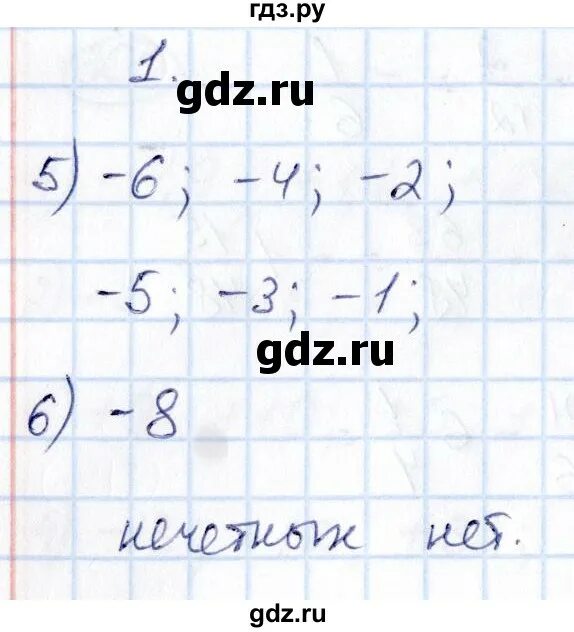 гдз.ру
1.
gdz.ru
5) -6; -4; -2;
-5; -3; -1;
gdz.ru
6) -8
нечетных нет.
gdz.ru